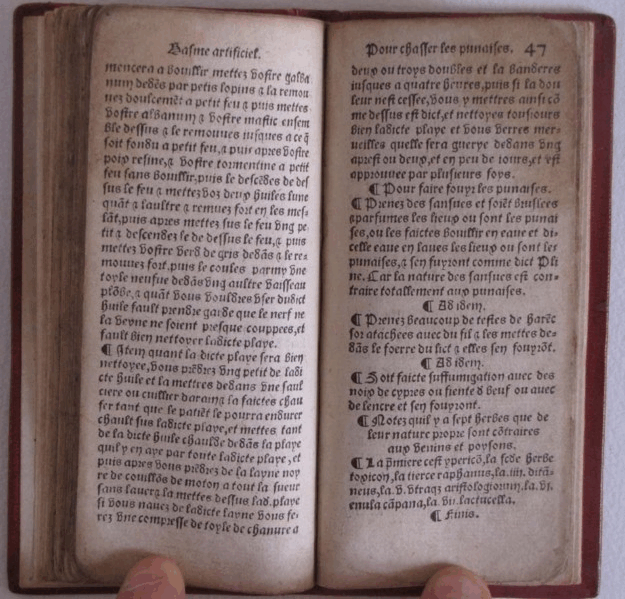 Basme artificiel.
mencera a bouillir mettez vostre galba
num dedẽs par petis lopins & la remou
uez doulcemẽt a petit feu & puis mettes
vostre albanum & vostre mastic ensem
ble dessus & le remouues iusques a ce q̃
soit fondu a petit feu, & puis apres vostre
poix resine, & vostre tormentine a petit
feu sans bouillir, puis le descẽdes de des
sus le feu & mettez voz deux huiles lune
quãt & laultre & remuez fort en les mes-
lãt, puis apres mettez sus le feu vng pe-
tit & descendez le de dessus le feu, & puis
mettez vostre verd de gris dedãs & le re-
mouuez fort, puis le coules parmy vne
toyle neufue dedãs vng aultre vaisseau
plõbe, & quãt vous vouldres vser dudict
huile fault prendre garde que le nerf ne
la veyne ne soient presque couppees, et
fault bien nettoyer ladicte playe.
¶ Item quant la dicte playe sera bien
nettoyee, vous prẽdrez vng petit de ladi
cte huile et la mettres dedans vne saul
ciere ou cuillier darain & la faictes chau
fer tant que le patiẽt le pourra endurer
chault sus ladicte playe, et mettes tant
de la dicte huile chaulde dedãs la playe
quil y en aye par toute ladicte playe, et
puis apres vous prẽdrez de la layne noy
re de couillõs de moton a tout la sueur
sans lauer & la mettes dessus lad. playe
si vous nauez de ladicte layne vous fe-
rez vne compresse de toyle de chanure a
Pour chasser les punaises. 47
deux ou troys doubles et la banderes
iusques a quatre heures, puis si la dou
leur nest cessee, vous y mettres ainsi cõ
me dessus est dict, et nettoyes tousiours
bien ladicte playe et vous verres mer-
ueilles quelle sera guerye dedans vng
apres ou deux, et en peu de iours, et est
approuuee par plusieurs foys.
¶ Pour faire fouyr les punaises.
¶ Prenez des sansues et soiẽt bruslees
& parfumes les lieux ou sont les punai
ses, ou les faictes bouillir en eaue et di-
celle eaue en laues les lieux ou sont les
punaises, & sen fuyront comme dict Pli
ne. Car la nature des sansues est con-
traire totallement aux punaises.
¶ Ad idem.
¶ Prenez beaucoup de testes de harẽc
sor atachees auec du fil & les mettes de-
dãs le foerre du lict & elles sen fouyrõt.
¶ Ad idem.
¶ Soit faicte suffumigation auec des
noix de cypres ou fiente d beuf ou auec
de lencre et sen fouyront.
¶ Notez quil y a sept herbes que de
leur nature propre sont cõtraires
aux venins et poysons.
¶ La p̃miere cest ypericõ, la secõde herbe
topicon, la tierce raphanus, la .iiii. ditã-
neus, la .v. vtraq; aristologiorum, la .vi.
enula cãpana, la .vii. lactucella.
¶ Finis.